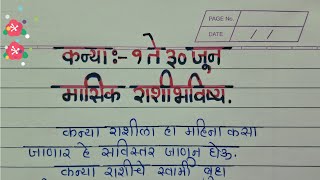 PAGE No.
DATE / /
कन्या:- १ ते ३० जून
मासिक राशीभविष्य.
कन्या राशीला हा महिना कसा
जाणार हे सविस्तर जाणून घेऊ.
कन्या राशीचे स्वामी बुध